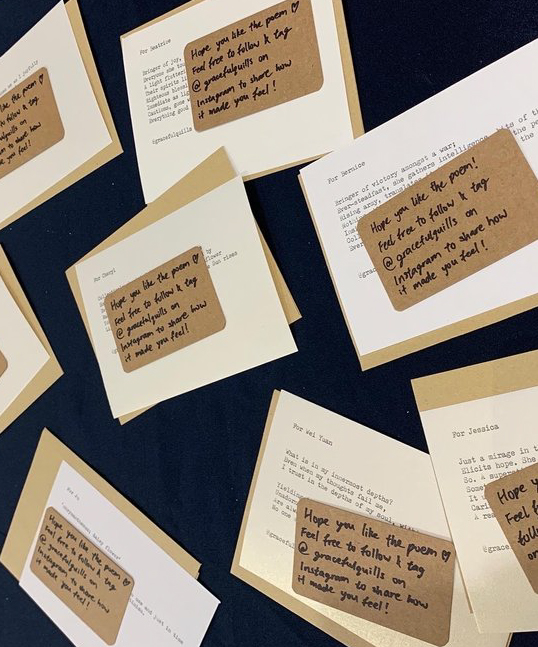 like the poem ♡
to follow & tag
quills on
to share how
you feel!
For Beatrice
Bringer of Joy,
Everyone she
A light
Their spirits
Righteous
Immediate as
Cautious, gone
Everything good
@gracefulquills
Hope you like the poem ♡
Feel free to follow & tag
@gracefulquills on
Instagram to share how
it made you feel!
For Bernice
Bringer of victory amongst a war;
Ever-steadfast, she gathers intelligence
Rising army,
Hope you like the poem!
Feel free to follow & tag
@gracefulquills on
Instagram to share how
it made you feel!
For Cheryl
by
flower
Sun rises
Hope you like the poem ♡
Feel free to follow & tag
@gracefulquills on
Instagram to share how
it made you feel!
For Wei Yuan
What is in my innermost depths?
Even when my thoughts fail me,
I trust in the depths of my soul,
So one
@graceful
Hope you like the poem ♡
Feel free to follow & tag
@gracefulquills on
Instagram to share how
it made you feel!
For Jessica
Just a mirage in
Elicits hope. She
So. A
Some
It
@grace
Hope yo
Feel f
For Jo
Hope you like the poem ♡
Feel free to follow & tag
@gracefulquills on
Instagram to share how
it made you feel!